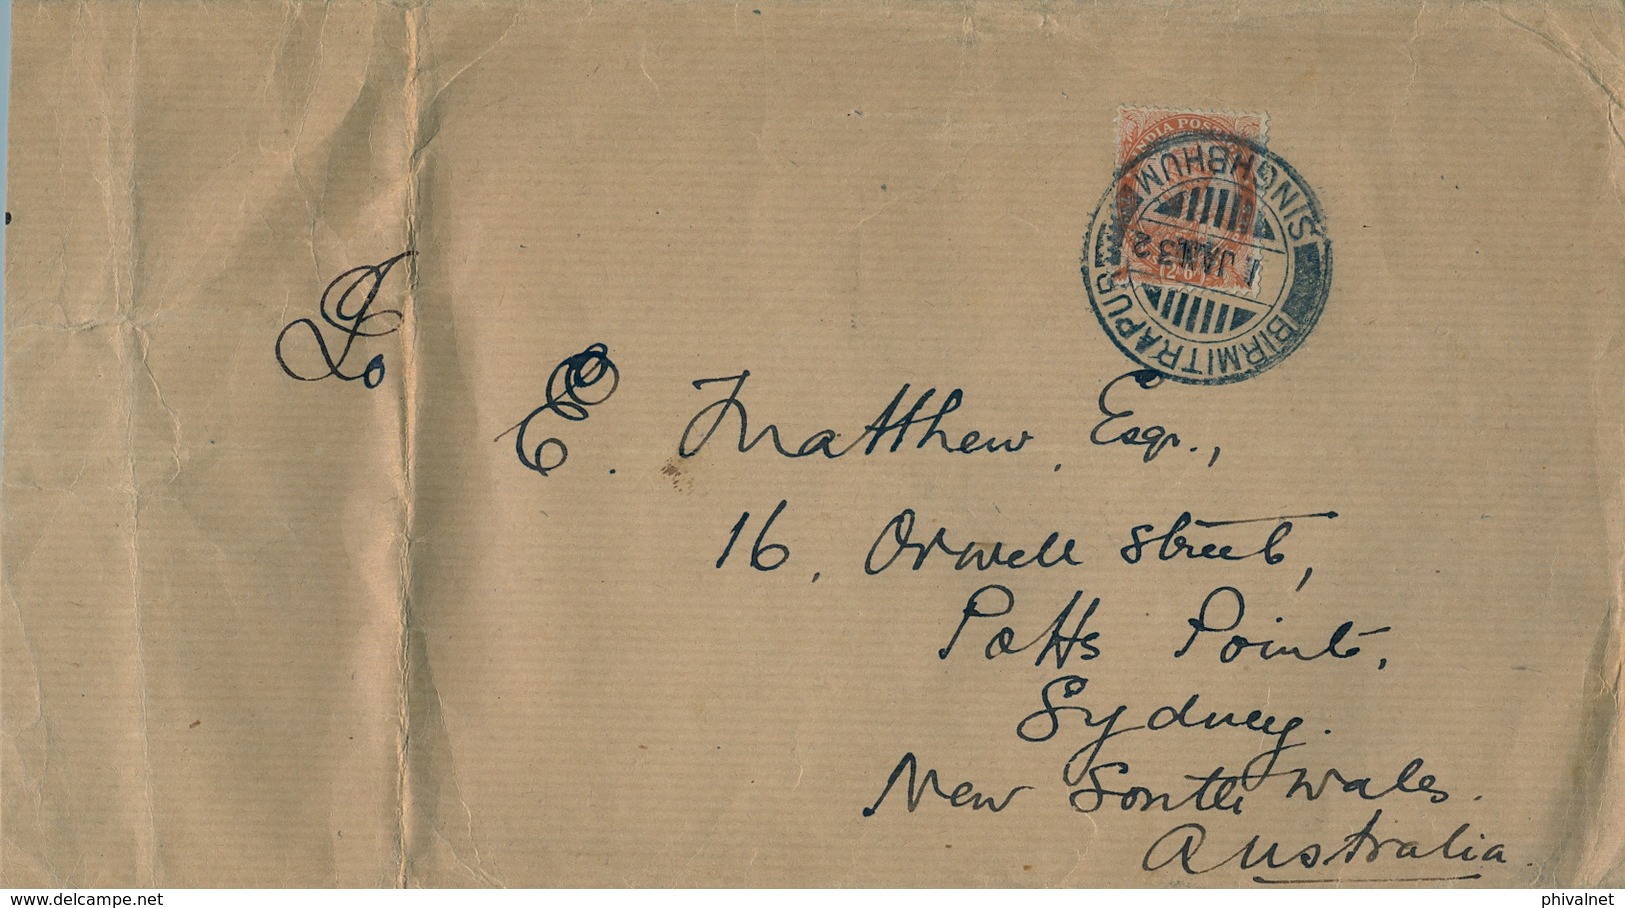 INDIA POST
2 A 6
SINGHBHUM
1 JAN 32
BIRMITRAPUR
To
E. Matthew, Esqr.,
16, Orwell Street,
Potts Point,
Sydney.
New South Wales.
Australia.
delcampe.net
phivalnet